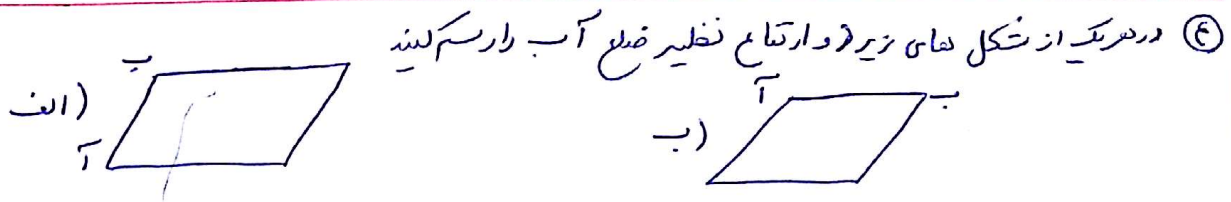 ④ در هریک از شکل های زیر دو ارتفاع نظیر ضلع آب را رسم کنید
الف) ب آ
ب) آ ب